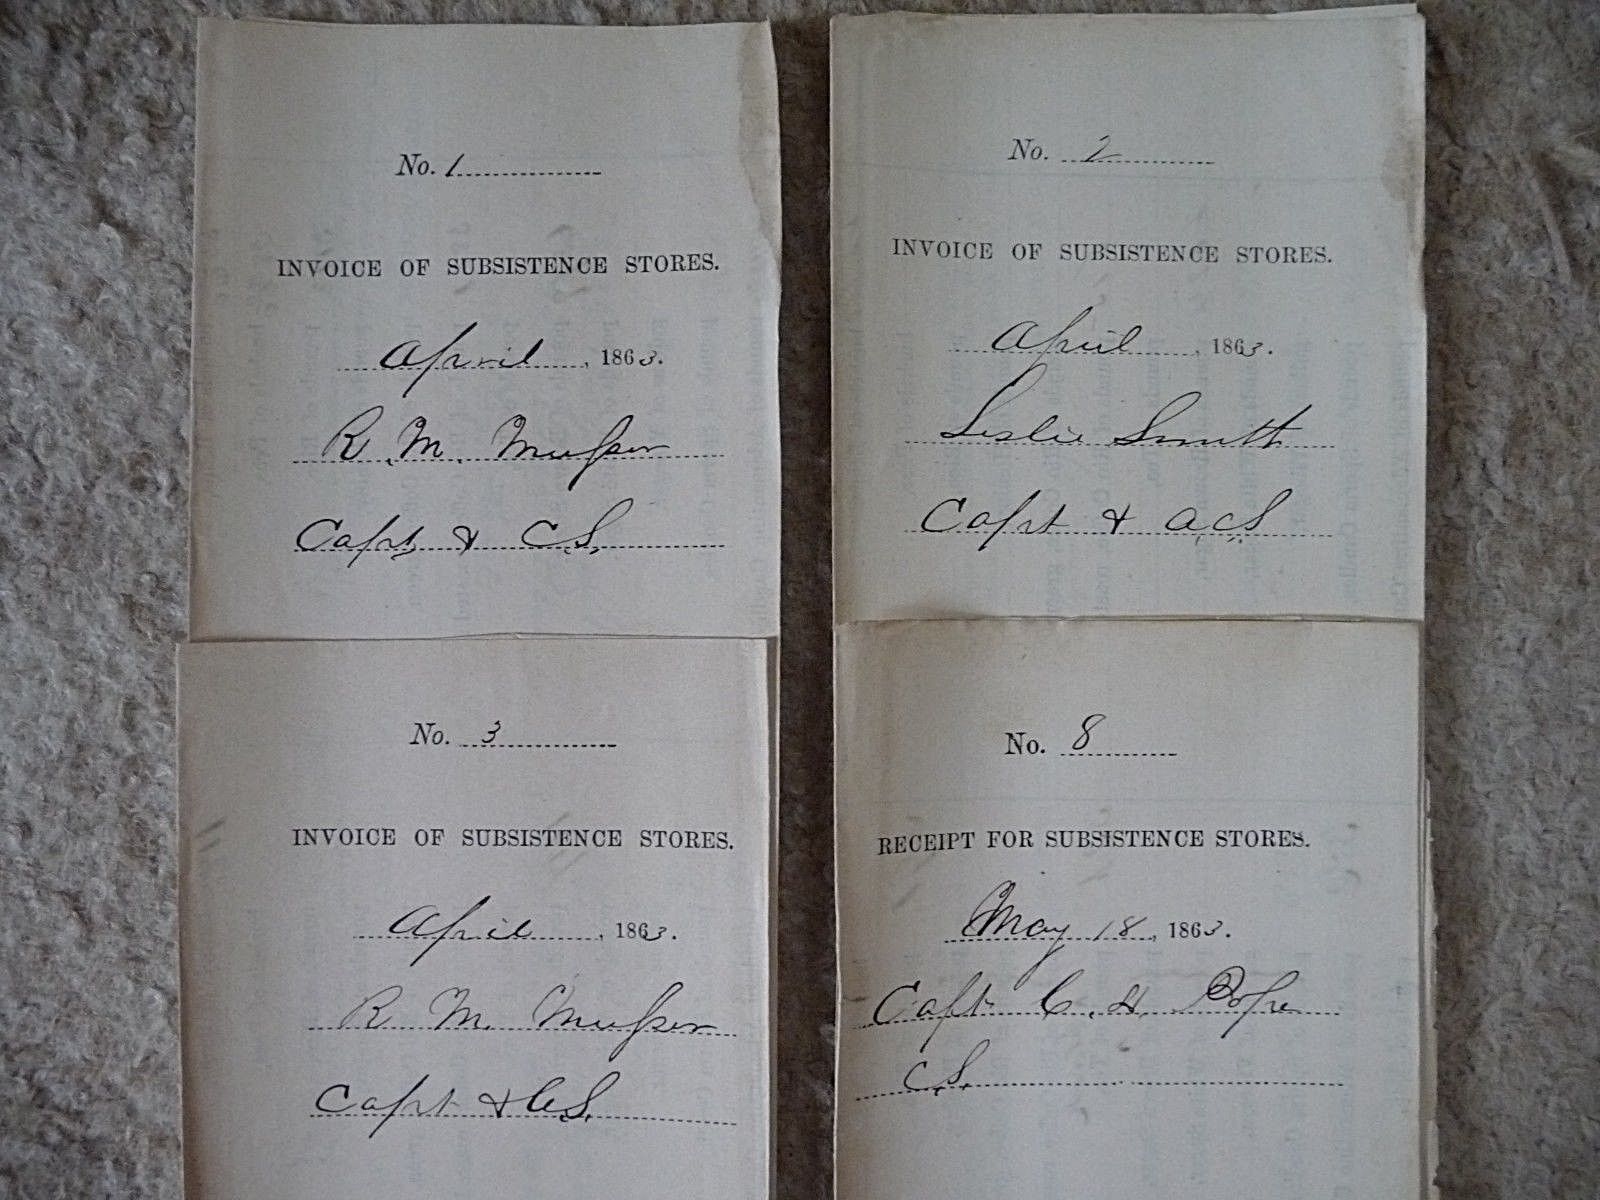 No. 1
INVOICE OF SUBSISTENCE STORES.
April, 1863.
R. M. Musser
Capt & C.S.
No. 2
INVOICE OF SUBSISTENCE STORES.
April, 1863.
Leslie Smith
Capt & A.C.S.
No. 3
INVOICE OF SUBSISTENCE STORES.
April, 1863.
R. M. Musser
Capt & C.S.
No. 8
RECEIPT FOR SUBSISTENCE STORES.
May 18, 1863.
Capt C. H. Pope
C.S.